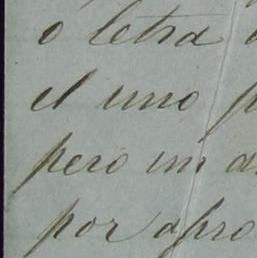 ó letra
el uno p
pero un a
por apro